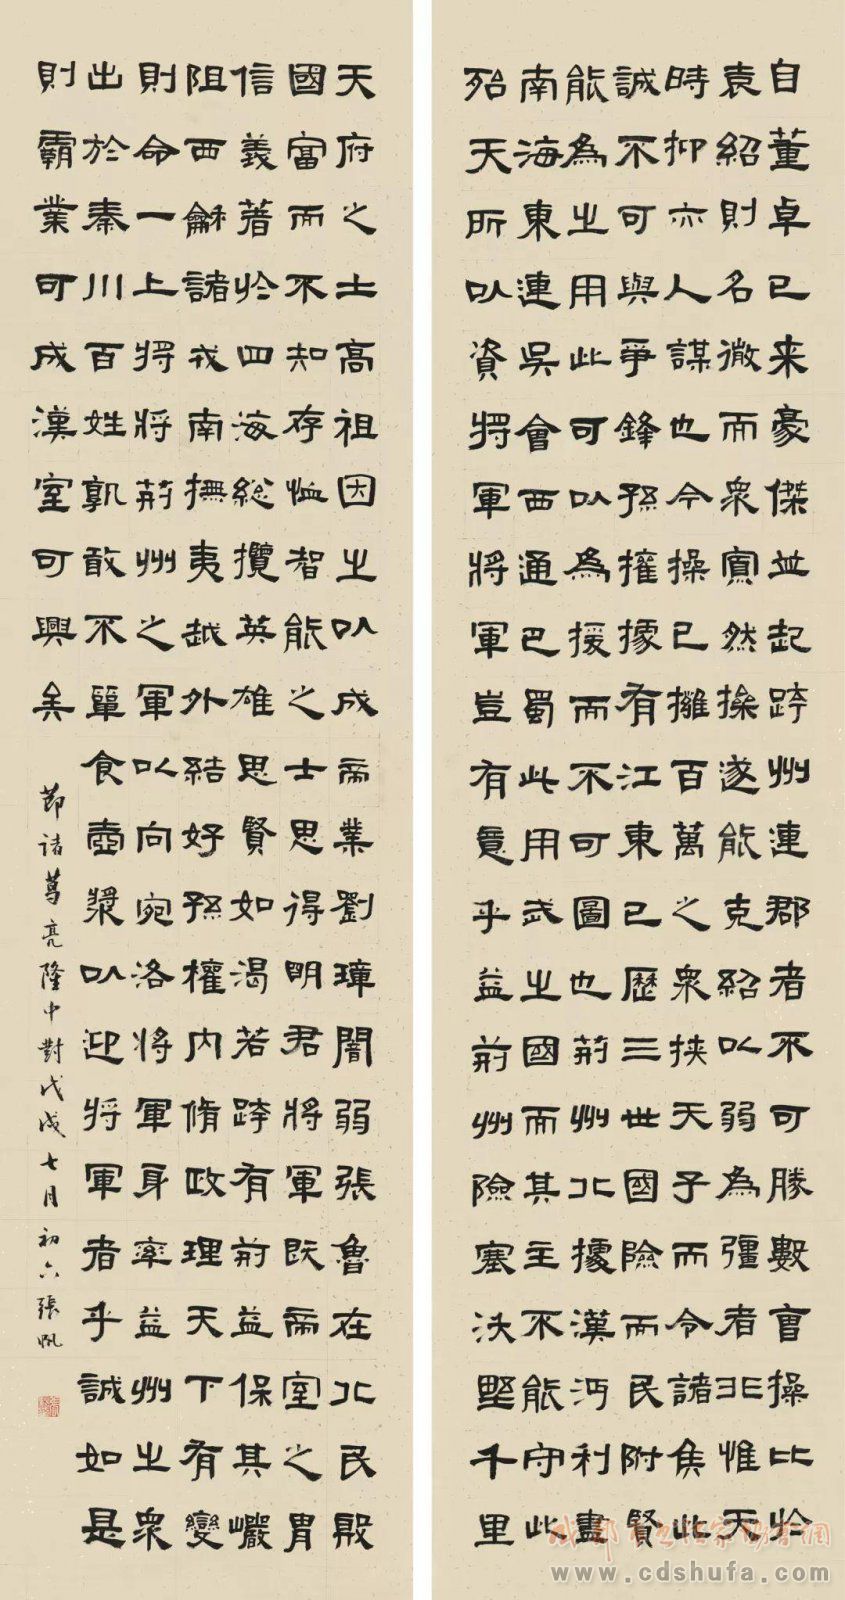 自董卓已来豪傑並起跨州連郡者不可勝數曹操比於
袁紹則名微而衆寡然操遂能克紹以弱為彊者非惟天
時抑亦人謀也今操已擁百萬之衆挾天子而令諸侯此
誠不可與爭鋒孫權據有江東已歷三世國險而民附賢
能為之用此可以為援而不可圖也荊州北據漢沔利盡
南海東連吳會西通巴蜀此用武之國而其主不能守此
殆天所以資將軍將軍豈有意乎益荊州險塞沃野千里
天府之土高祖因之以成帝業劉璋闇弱張魯在北民殷
國富而不知存恤智能之士思得明君將軍既帝室之胄
信義著於四海総攬英雄思賢如渴若跨有荊益保其巖
阻西龢諸戎南撫夷越外結好孫權內脩政理天下有變
則命一上將將荊州之軍以向宛洛將軍身率益州之衆
出於秦川百姓孰敢不簞食壺漿以迎將軍者乎誠如是
則霸業可成漢室可興矣
節諸葛亮隆中對戊戌七月初六張帆
成都市书法家协会網
www.cdshufa.com